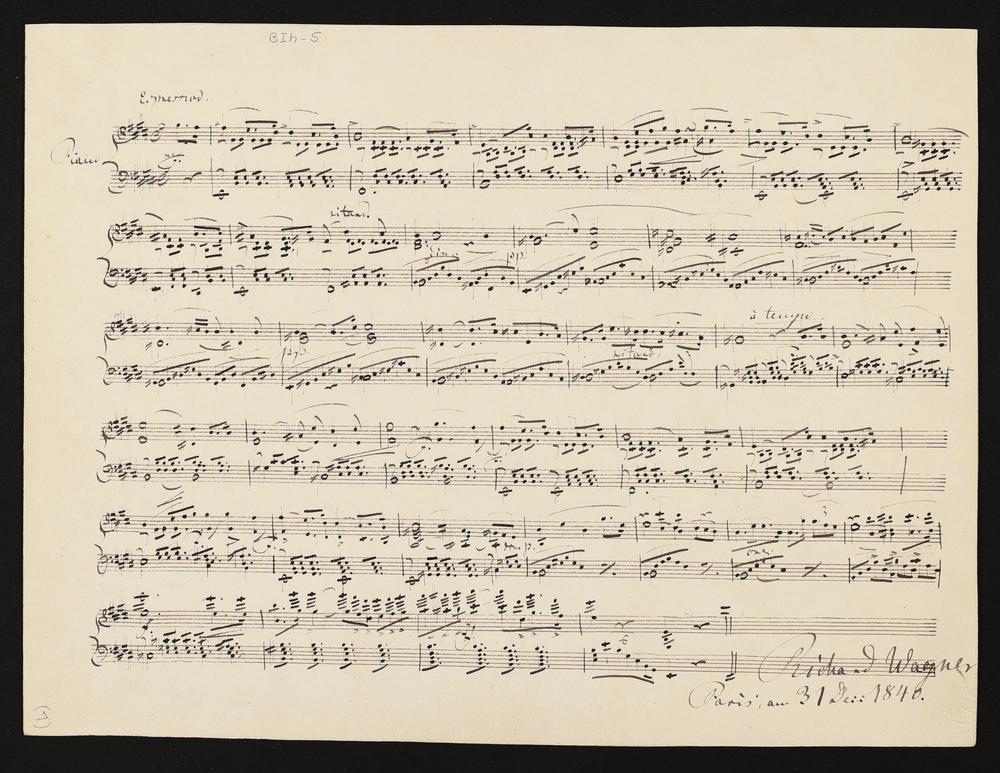 BIh-5
Piano
ritard.
pp.
pp.
à tempo.
ritard.
Richard Wagner
Paris, am 31 Dec: 1840.